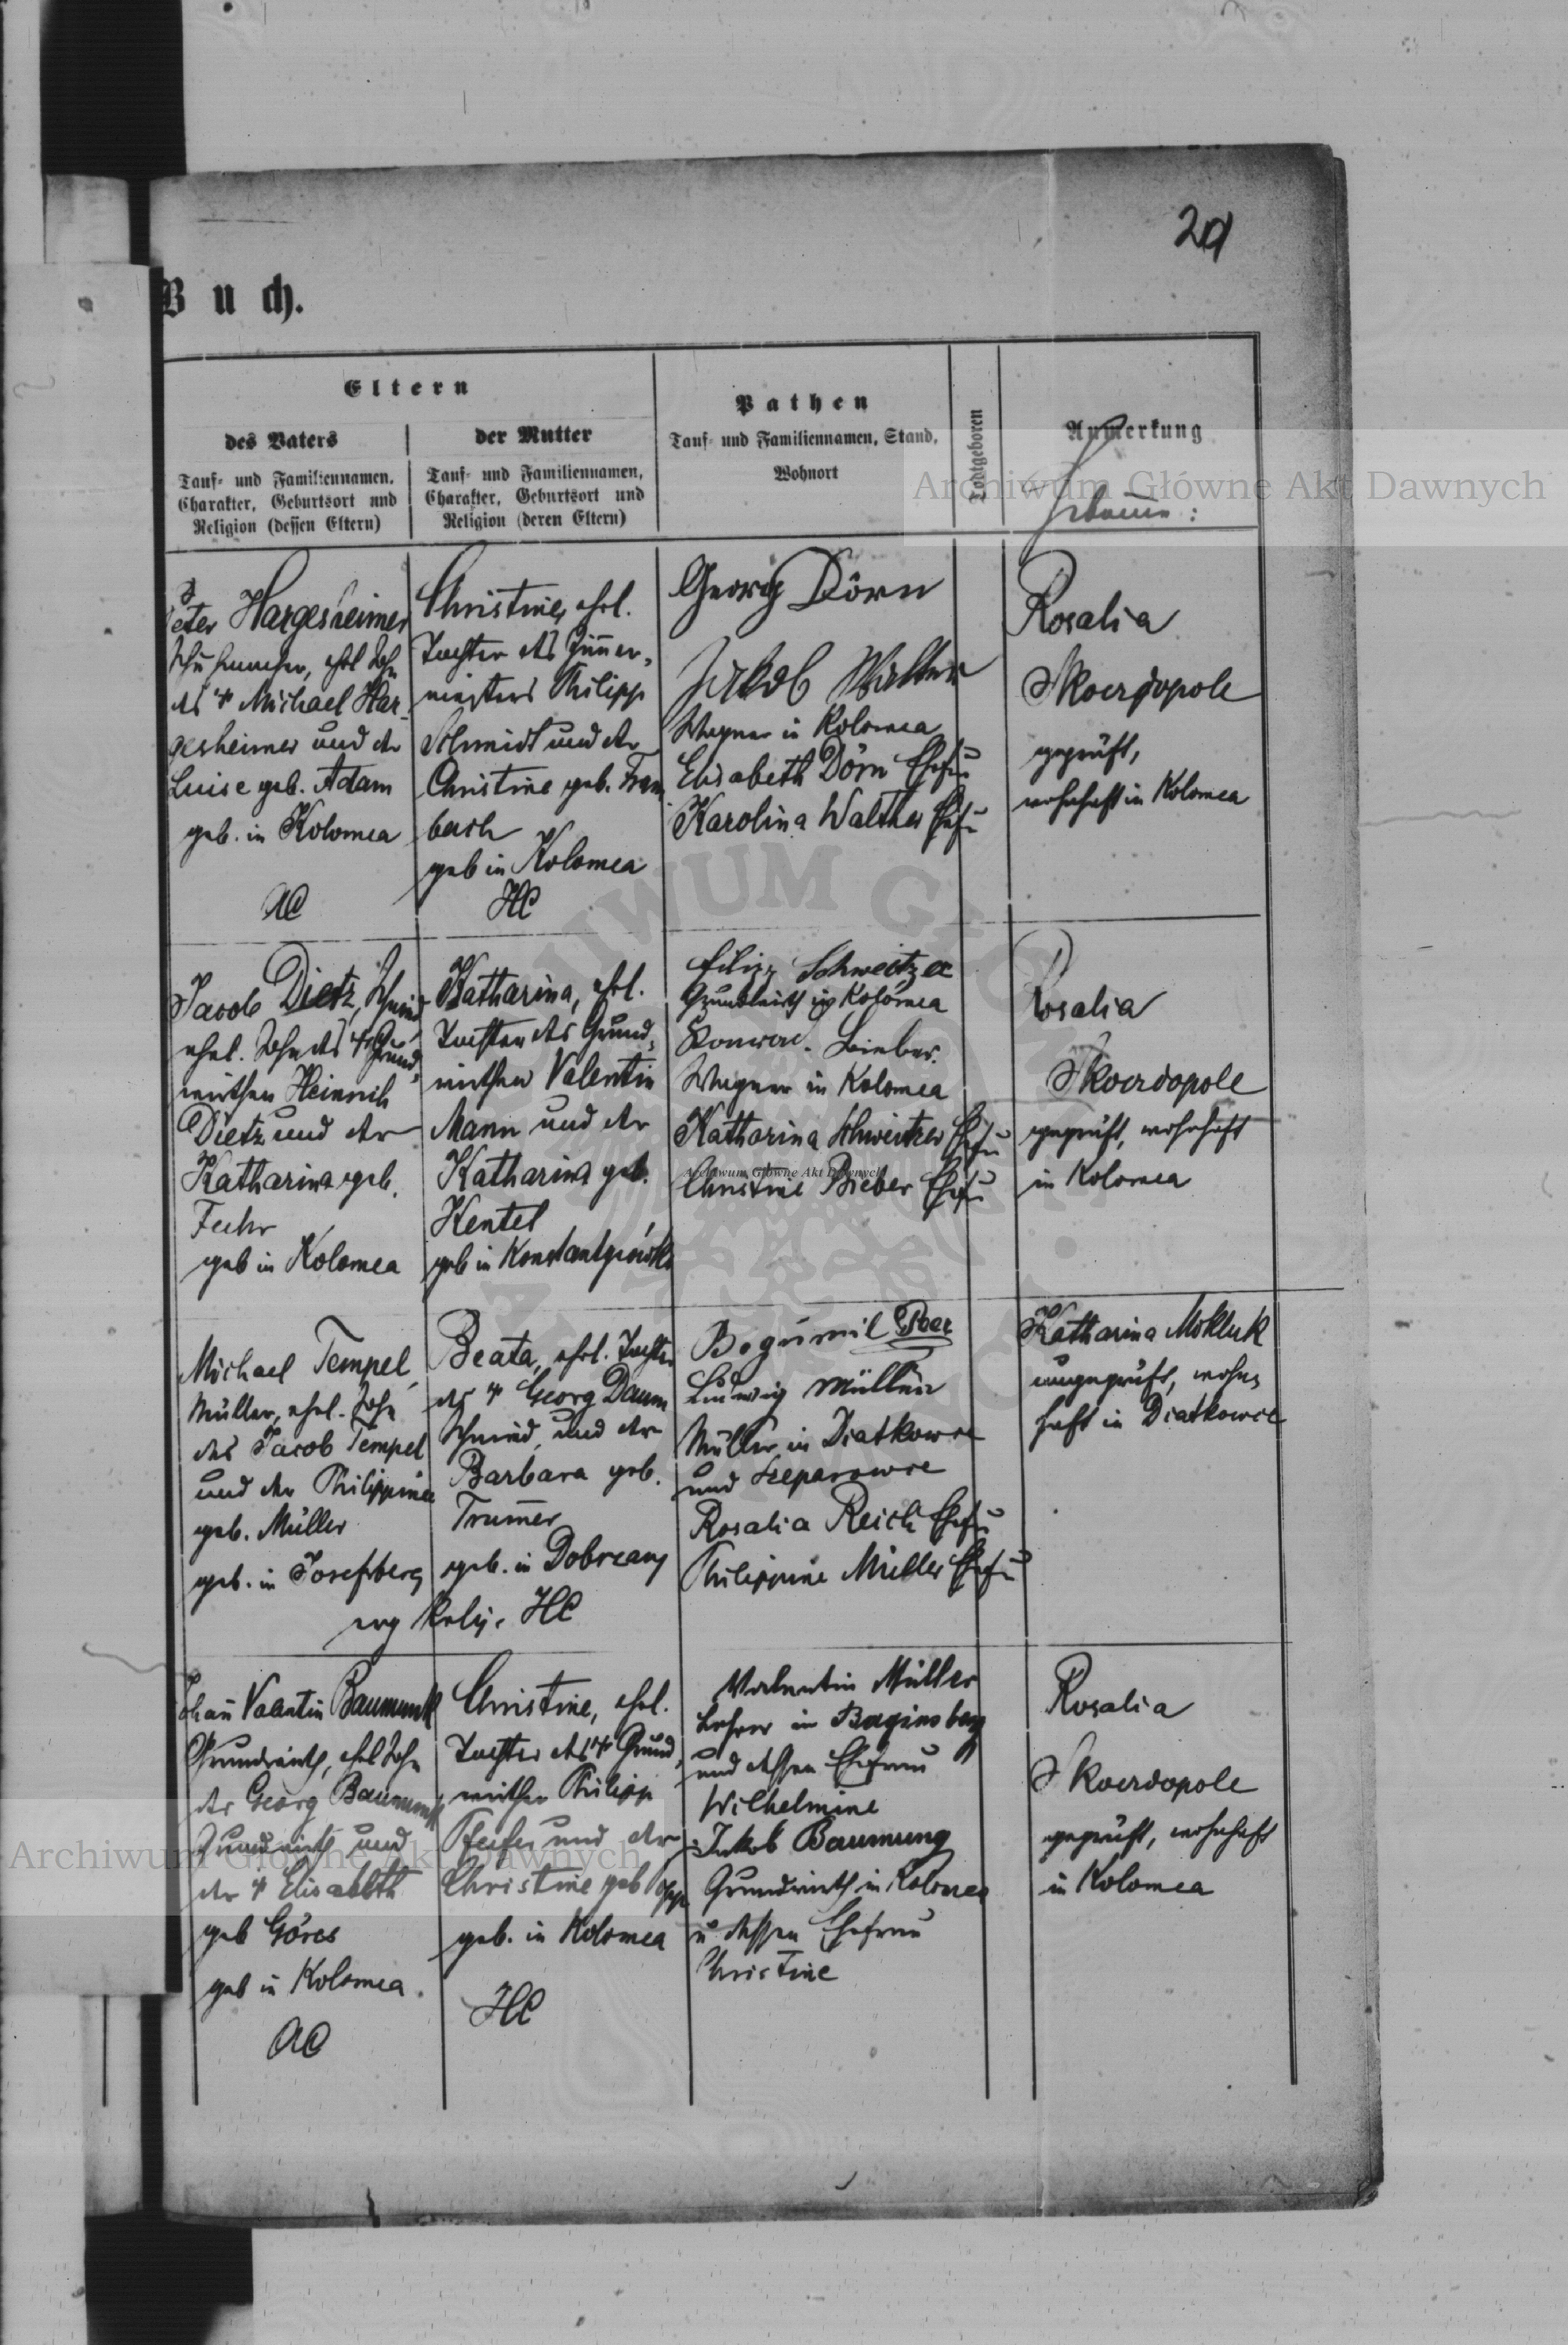 29
Buch.
Eltern
des Vaters
Tauf- und Familiennamen,
Charakter, Geburtsort und
Religion (dessen Eltern)
der Mutter
Tauf- und Familiennamen,
Charakter, Geburtsort und
Religion (deren Eltern)
Pathen
Tauf- und Familiennamen, Stand,
Wohnort
Todtgeboren
Anmerkung
Hebamme:
Peter Hargesheimer
Schuhmacher, ehel Sohn
des † Michael Har-
gesheimer und der
Luise geb. Adam
geb. in Kolomea
AC
Christine, ehel.
Tochter des Zimer-
meisters Philipp
Schmidt und der
Christine geb. Fram
bach
geb in Kolomea
HC
Georg Dörn
Jakob Walther
Wagner in Kolomea
Elisabeth Dörn Ehefr
Karolina Walther Ehefr
Rosalia
Skoerdopole
geprüft,
wohnhaft in Kolomea
Jacob Dietz, Schmied
ehel. Sohn des † Grund-
wirthen Heinrich
Dietz und der
Katharina geb.
Fuhr
geb in Kolomea
Katharina, ehel.
Tochter des Grund-
wirthen Valentin
Mann und der
Katharina geb.
Kentel
geb in Konstantpówka
Filipp Schweitzer
Grundwirth in Kolomea
Konrad Bieber
Wagner in Kolomea
Katharina Schweitzer Ehefr
Christine Bieber Ehefr
Rosalia
Skoerdopole
geprüft, wohnhaft
in Kolomea
Michael Tempel,
Müller, ehel. Sohn
des Jacob Tempel
und der Philippine
geb. Müller
geb. in Josefsberg
Beata, ehel. Tochter
des † Georg Daum
Schmied, und der
Barbara geb.
Trumer
geb. in Dobrzany
evg Relig. HC
Bogumil
Ludwig Müller
Müller in Diatkowce
und Szeparowce
Rosalia Reich Ehefr
Philippine Müller Ehefr
Katharina Mokluk
ungeprüft, wohn-
haft in Diatkowce
Johan Valentin Baumunk
Grundwirth, ehel Sohn
des Georg Baumunk
Grundwirth und
der † Elisabeth
geb Göres
geb in Kolomea.
AC
Christine, ehel.
Tochter des † Grund-
wirthen Philipp
Pfeifer und der
Christine geb
geb. in Kolomea
HC
Valentin Müller
Lehrer in Baginsberg
und dessen Ehefrau
Wilhelmine
Jakob Baumung
Grundwirth in Kolomea
u dessen Ehefrau
Christine
Rosalia
Skoerdopole
geprüft, wohnhaft
in Kolomea
Archiwum Główne Akt Dawnych
Archiwum Główne Akt Dawnych
Archiwum Główne Akt Dawnych